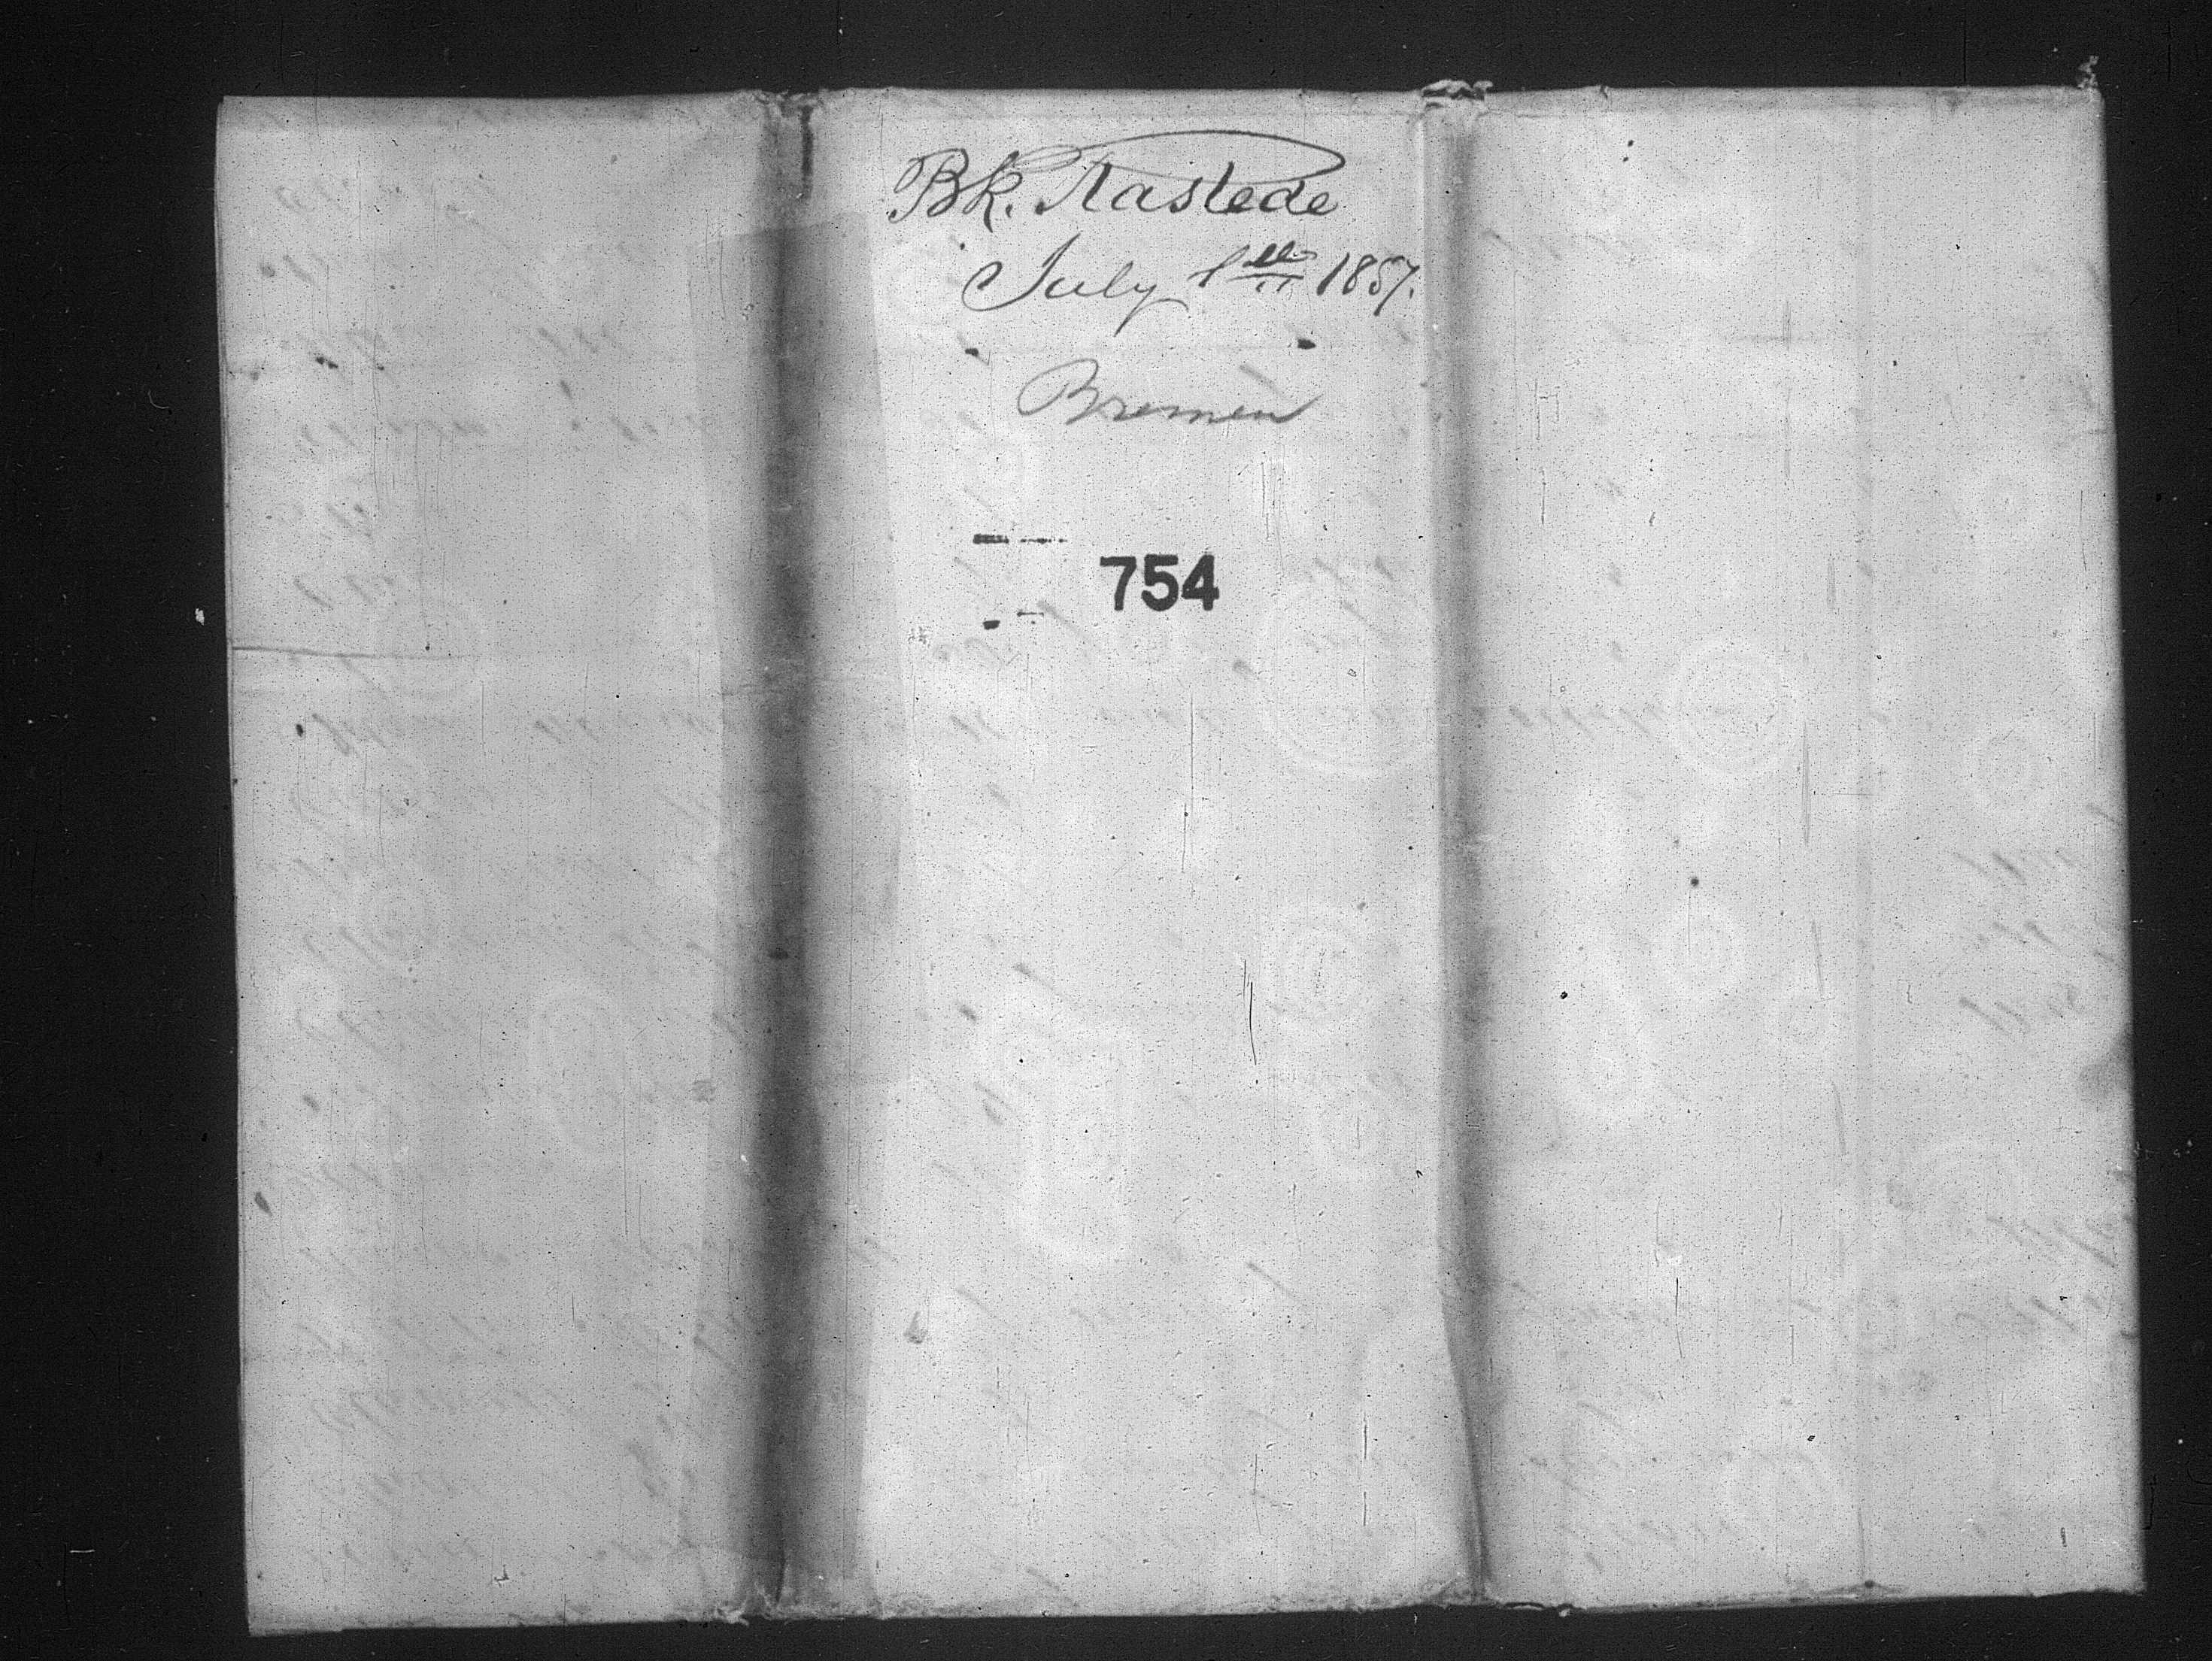 Bk. Rastede
July 1st 1857.
Bremen
754